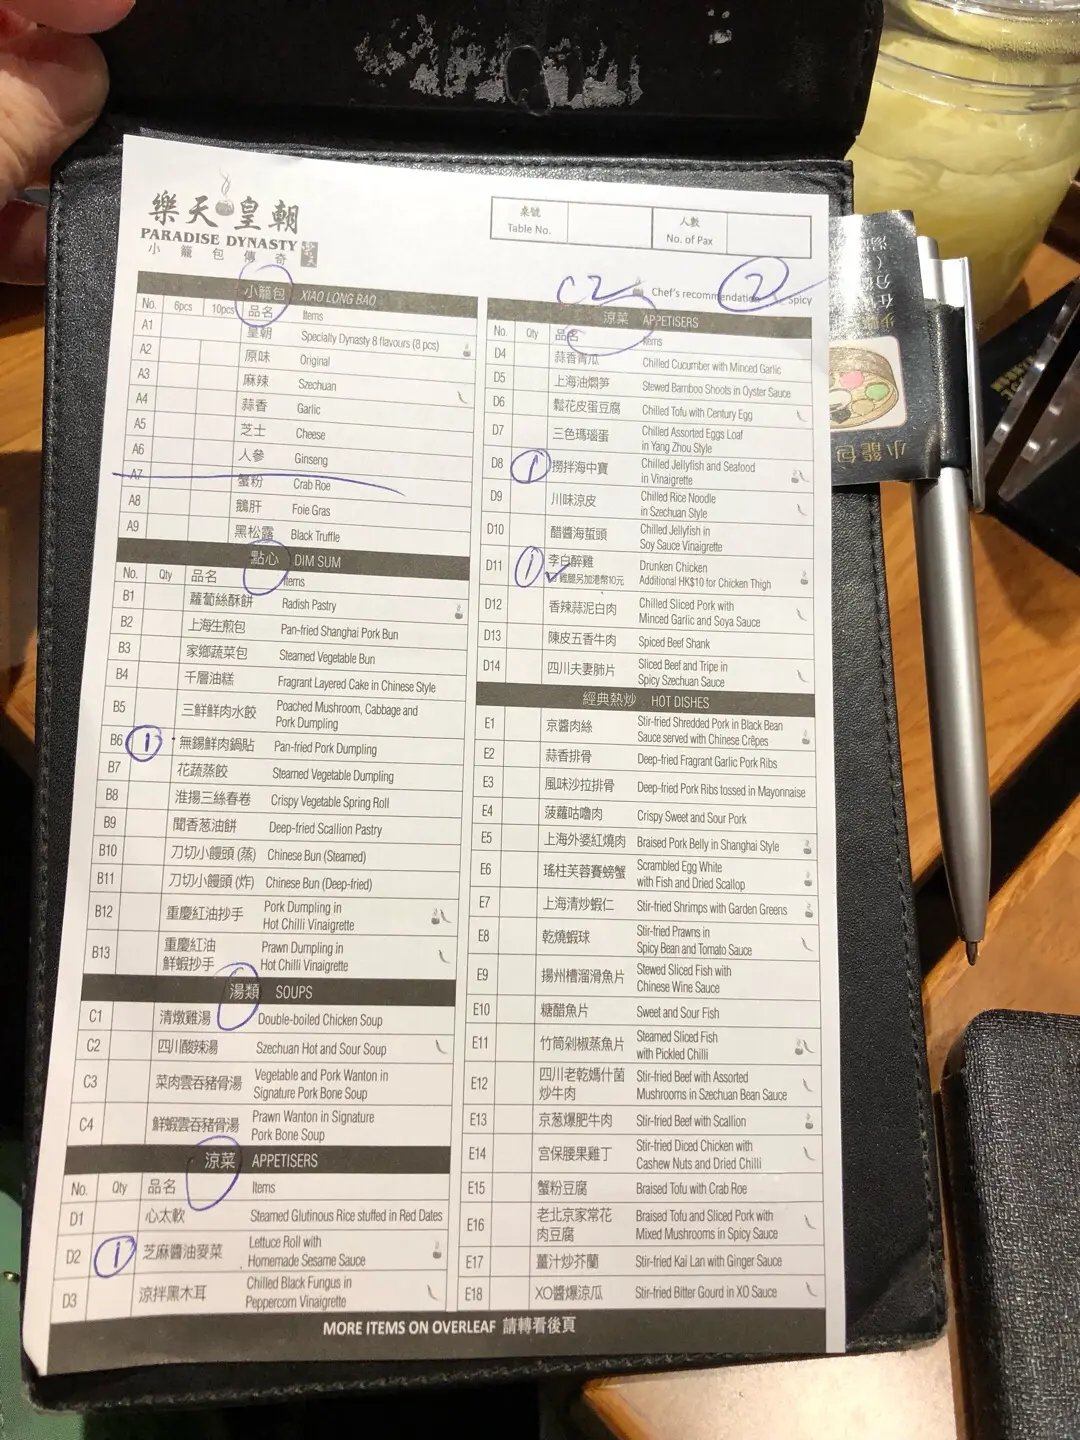 樂天皇朝
PARADISE DYNASTY
小籠包傳奇
桌號
Table No.
人數
No. of Pax
C2
2
Chef's recommendation
Spicy
小籠包 XIAO LONG BAO
No. 6pcs 10pcs 品名 Items
A1 皇朝 Specialty Dynasty 8 flavours (8 pcs)
A2 原味 Original
A3 麻辣 Szechuan
A4 蒜香 Garlic
A5 芝士 Cheese
A6 人參 Ginseng
A7 蟹粉 Crab Roe
A8 鵝肝 Foie Gras
A9 黑松露 Black Truffle
點心 DIM SUM
No. Qty 品名 Items
B1 蘿蔔絲酥餅 Radish Pastry
B2 上海生煎包 Pan-fried Shanghai Pork Bun
B3 家鄉蔬菜包 Steamed Vegetable Bun
B4 千層油糕 Fragrant Layered Cake in Chinese Style
B5 三鮮鮮肉水餃 Poached Mushroom, Cabbage and
Pork Dumpling
B6 1 無錫鮮肉鍋貼 Pan-fried Pork Dumpling
B7 花蔬蒸餃 Steamed Vegetable Dumpling
B8 淮揚三絲春卷 Crispy Vegetable Spring Roll
B9 聞香葱油餅 Deep-fried Scallion Pastry
B10 刀切小饅頭 (蒸) Chinese Bun (Steamed)
B11 刀切小饅頭 (炸) Chinese Bun (Deep-fried)
B12 重慶紅油抄手 Pork Dumpling in
Hot Chilli Vinaigrette
B13 重慶紅油 Prawn Dumpling in
鮮蝦抄手 Hot Chilli Vinaigrette
湯類 SOUPS
C1 清燉雞湯 Double-boiled Chicken Soup
C2 四川酸辣湯 Szechuan Hot and Sour Soup
C3 菜肉雲吞豬骨湯 Vegetable and Pork Wanton in
Signature Pork Bone Soup
C4 鮮蝦雲吞豬骨湯 Prawn Wanton in Signature
Pork Bone Soup
涼菜 APPETISERS
No. Qty 品名 Items
D1 心太軟 Steamed Glutinous Rice stuffed in Red Dates
D2 1 芝麻醬油麥菜 Lettuce Roll with
Homemade Sesame Sauce
D3 涼拌黑木耳 Chilled Black Fungus in
Peppercorn Vinaigrette
涼菜 APPETISERS
No. Qty 品名 Items
D4 蒜香青瓜 Chilled Cucumber with Minced Garlic
D5 上海油燜筍 Stewed Bamboo Shoots in Oyster Sauce
D6 鬆花皮蛋豆腐 Chilled Tofu with Century Egg
D7 三色瑪瑙蛋 Chilled Assorted Eggs Loaf
in Yang Zhou Style
D8 1 撈拌海中寶 Chilled Jellyfish and Seafood
in Vinaigrette
D9 川味涼皮 Chilled Rice Noodle
in Szechuan Style
D10 醋醬海蜇頭 Chilled Jellyfish in
Soy Sauce Vinaigrette
D11 1 李白醉雞 Drunken Chicken
雞腿另加港幣10元 Additional HK$10 for Chicken Thigh
D12 香辣蒜泥白肉 Chilled Sliced Pork with
Minced Garlic and Soya Sauce
D13 陳皮五香牛肉 Spiced Beef Shank
D14 四川夫妻肺片 Sliced Beef and Tripe in
Spicy Szechuan Sauce
經典熱炒 HOT DISHES
E1 京醬肉絲 Stir-fried Shredded Pork in Black Bean
Sauce served with Chinese Crêpes
E2 蒜香排骨 Deep-fried Fragrant Garlic Pork Ribs
E3 風味沙拉排骨 Deep-fried Pork Ribs tossed in Mayonnaise
E4 菠蘿咕嚕肉 Crispy Sweet and Sour Pork
E5 上海外婆紅燒肉 Braised Pork Belly in Shanghai Style
E6 瑤柱芙蓉賽螃蟹 Scrambled Egg White
with Fish and Dried Scallop
E7 上海清炒蝦仁 Stir-fried Shrimps with Garden Greens
E8 乾燒蝦球 Stir-fried Prawns in
Spicy Bean and Tomato Sauce
E9 揚州槽溜滑魚片 Stewed Sliced Fish with
Chinese Wine Sauce
E10 糖醋魚片 Sweet and Sour Fish
E11 竹筒剁椒蒸魚片 Steamed Sliced Fish
with Pickled Chilli
E12 四川老乾媽什菌 Stir-fried Beef with Assorted
炒牛肉 Mushrooms in Szechuan Bean Sauce
E13 京葱爆肥牛肉 Stir-fried Beef with Scallion
E14 宮保腰果雞丁 Stir-fried Diced Chicken with
Cashew Nuts and Dried Chilli
E15 蟹粉豆腐 Braised Tofu with Crab Roe
E16 老北京家常花 Braised Tofu and Sliced Pork with
肉豆腐 Mixed Mushrooms in Spicy Sauce
E17 薑汁炒芥蘭 Stir-fried Kai Lan with Ginger Sauce
E18 XO醬爆涼瓜 Stir-fried Bitter Gourd in XO Sauce
MORE ITEMS ON OVERLEAF 請轉看後頁
小籠包